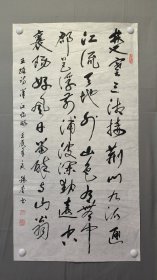 楚塞三湘接荆门九派通
江流天地外山色有无中
郡邑浮前浦波澜动远空
襄阳好风日留醉与山翁
王维诗汉江临眺
书